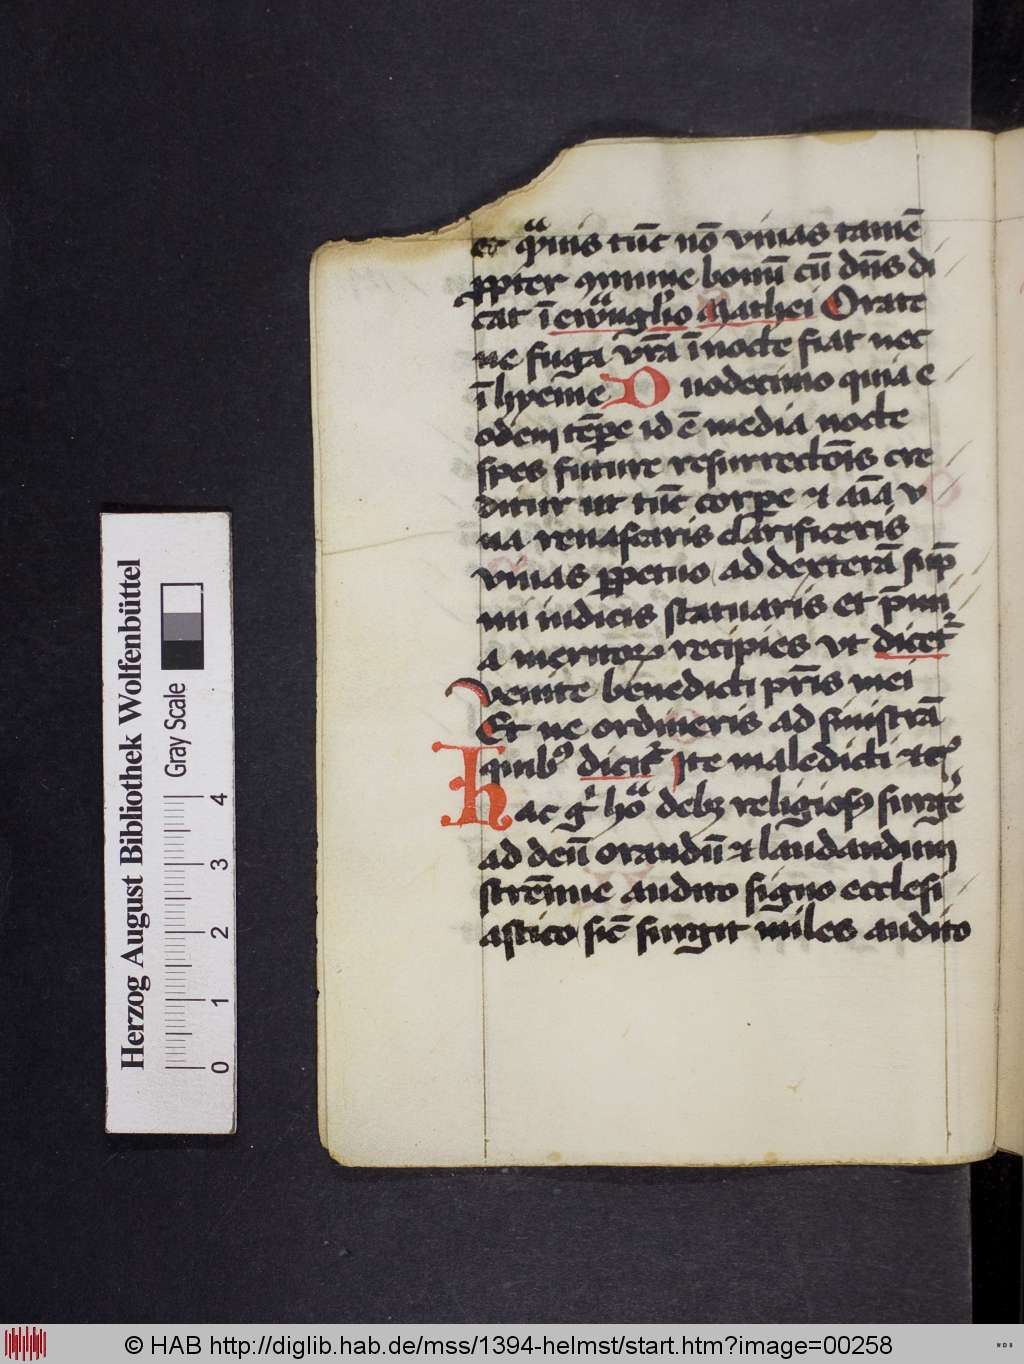 et qͣmis tūc nō viuas tamē
ꝓpter ꝯmune bonū cū dn̄s di
cat ī ewͣnglio Mathei Orate
ne fuga vr̄a ī nocte fiat nec
ī hyeme Duodecimo quia e
odem tēꝑe id ē media nocte
spes future resurrectōis cre
ditur ut tūc corꝑe ⁊ aīa v
na renascaris clarificeris
viuas ꝑpetuo ad dexterā sup̄
mi iudicis statuaris et p̄mi
a meritoꝝ recipies vt dicet᷑
venite benedicti pr̄is mei
Et ne ordineris ad sinistrā
quibꝰ dicit᷑ Ite maledicti ⁊cꝭ
Hac gͥ hͦa debꝫ religiosꝰ surgͤe
ad deū orandū ⁊ laudandum
strēnue audito signo ecclesi
astico sic̄ surgit miles audito
Herzog August Bibliothek Wolfenbüttel
Gray Scale
0 1 2 3 4
© HAB http://diglib.hab.de/mss/1394-helmst/start.htm?image=00258